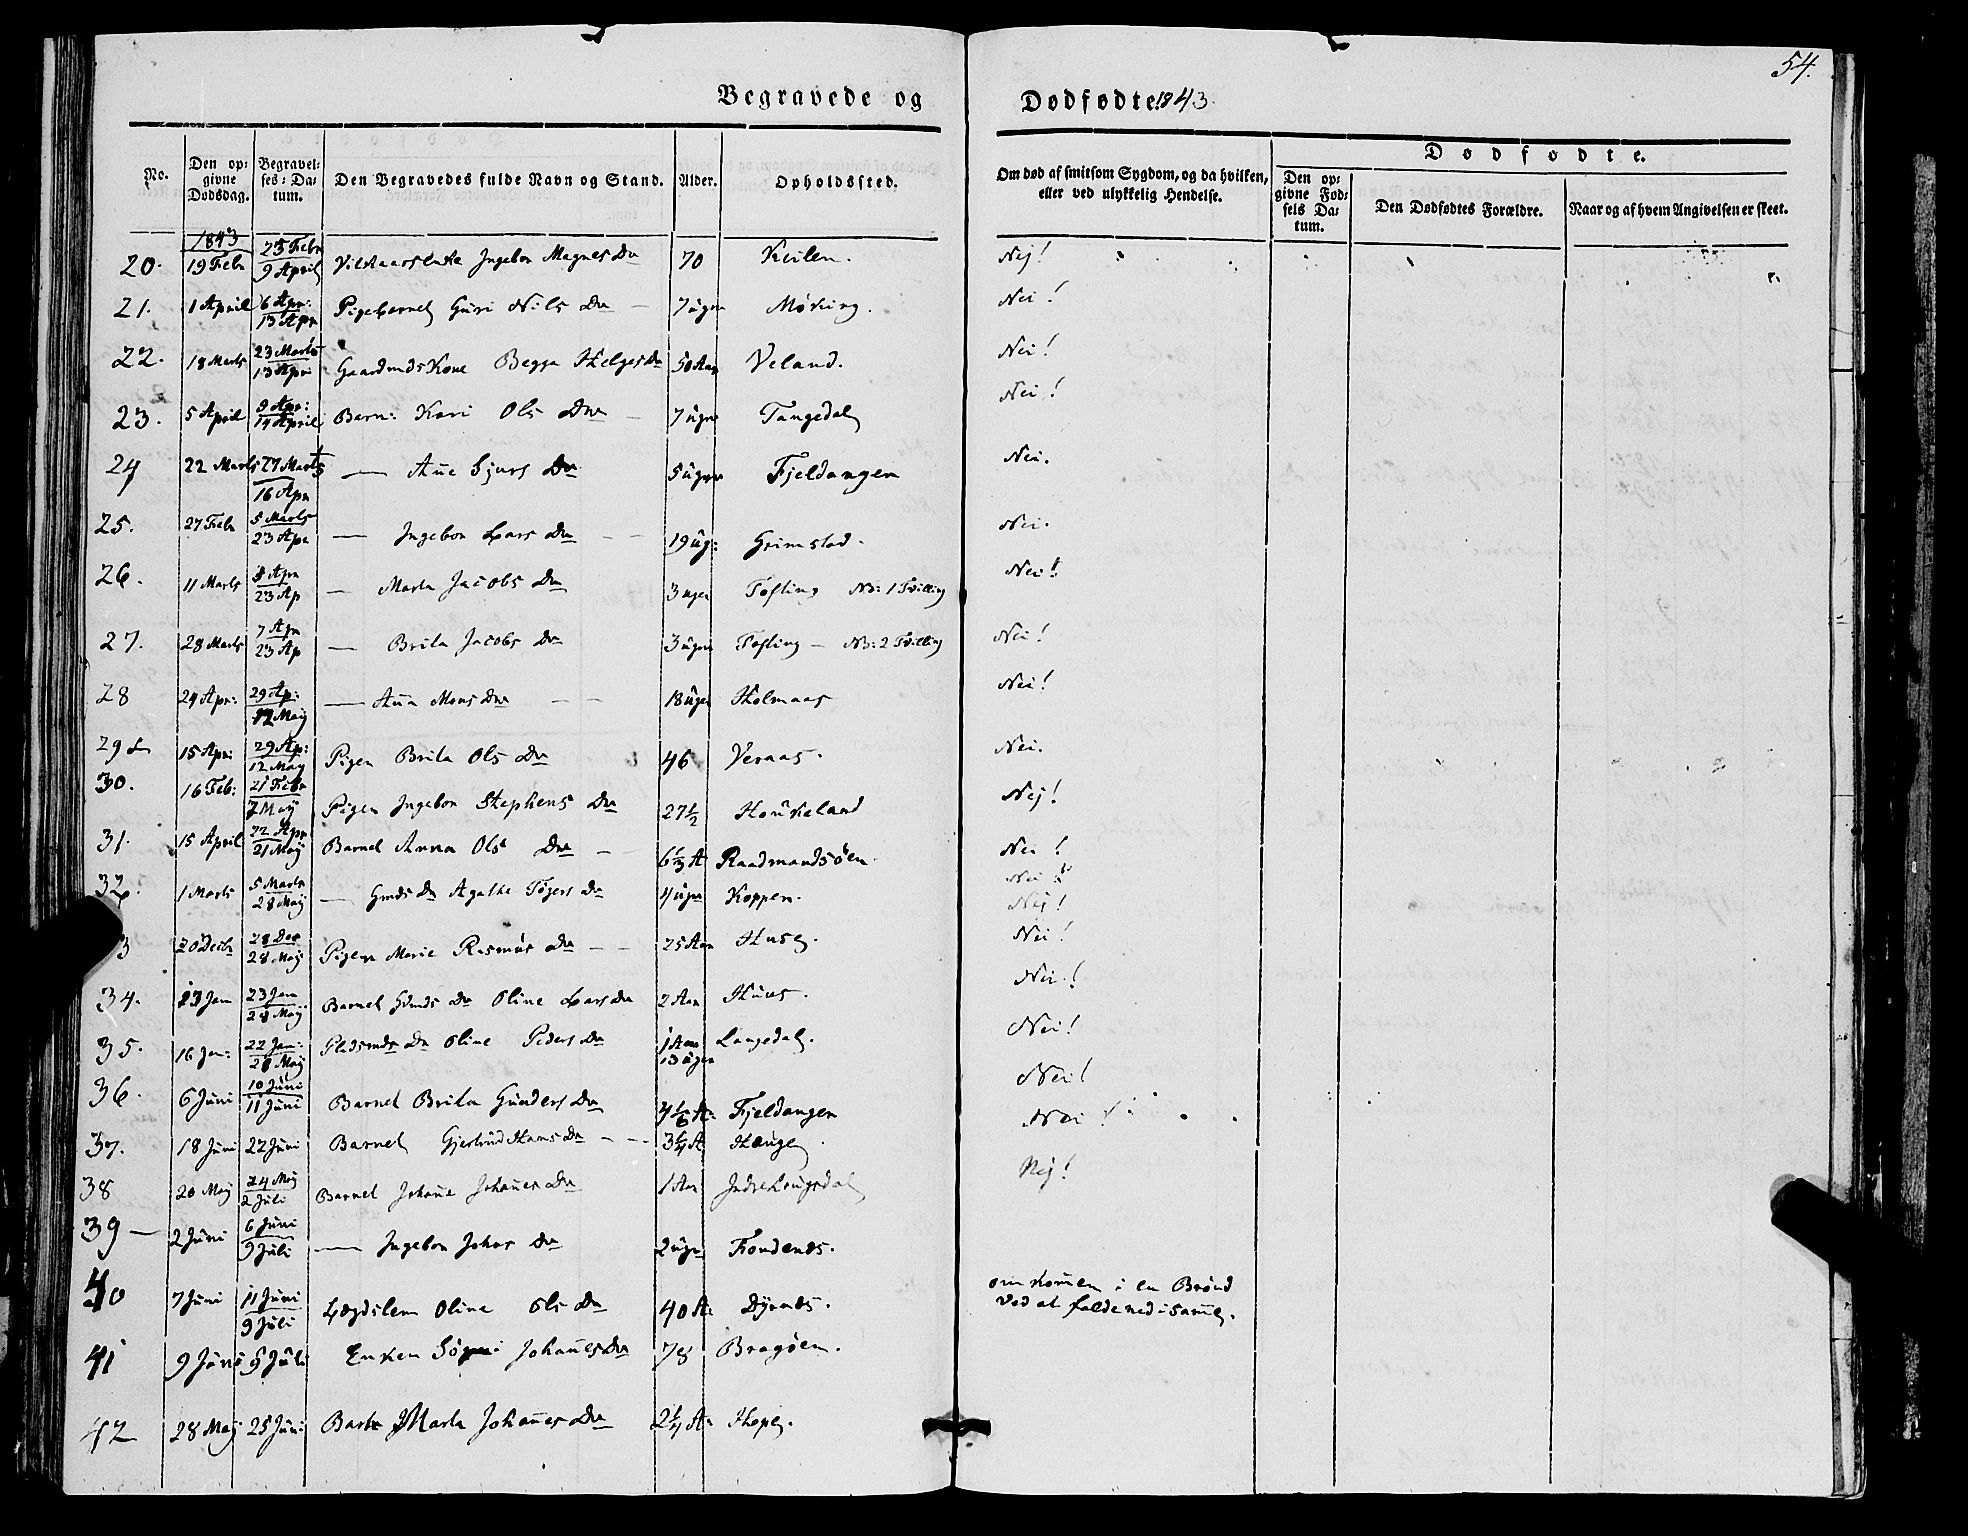 54.
Begravede og Dødfødte 1843.
No.
Den opgivne Dødsdag.
Begravelses-Datum.
Den Begravedes fulde Navn og Stand.
Alder.
Opholdssted.
Om død af smitsom Sygdom, og da hvilken, eller ved ulykkelig Hendelse.
Dødfødte.
Den opgivne Fødsels Datum.
Den Dødfødtes Forældre.
Naar og af hvem Angivelsen er skeet.
1843
20. 19 Febr 25 Febr 9 April Ingebor Magnes Dr 70 Kvilen. Nej!
21. 1 April 6 Apr: 13 Apr Pigebarnet Guri Nils Dr 7 uger Møking. Nei!
22. 18 Marts 23 Marts 13 Apr Gaardmds Kone Begga Helges Dr 50 Aar Veland. Nei!
23. 5 April 9 Apr: 14 April Barn: Kari Ols Dr 7 uger Tangedal Nei!
24 22 Marts 27 Marts 16 Apr — Ane Sjurs Dr 5 uger Fjeldangen Nei.
25. 27 Febr 5 Marts 23 Apr — Ingebor Lars Dr 19 ug: Grimstad. Nei.
26. 11 Marts 23 Ap — Marta Jacobs Dr 3 uger Tofting No: 1 Tvilling Nei!
27. 28 Marts 7 Apr 23 Ap — Brita Jacobs Dr 3 uger Tofting — No: 2 Tvilling Nei!
28 24 Apr: 29 Ap: 12 Maij — Ana Mons Dr 18 uger Holmaas Nei!
29 15 Apr: 29 Ap: 12 May Pigen Brita Ols Dr 46 Veraas. Nei.
30. 16 Feb: 21 Febr 7 Maij Pigen Ingebor Stephens Dr 27½ Houkeland Nej!
31. 15 April 22 Apr 21 Maij Barnet Anna Ols Dr 6⅓ A Raadmandsøen. Nei!
32. 1 Marts 5 Marts 28 Maij — Gmds Dr Agathe Tøgers Dr 4 uger Koppen. Nei!
Nej!
3 20 Decbr 28 Dec 28 Maij Pigen Marie Rasmus Dr 25 Aar Huse. Nei!
34. 23 Jan 28 Maij Barnet Gdmds Dr Oline Lars Dr 2 Aar Huus. Nei!
35. 16 Jan: 22 Jan: 28 Maij Pladsmds Dr Oline Peders Dr 1 Aar 13 uger Langedal. Nei!
36. 6 Juni 10 Juni 11 Juni Barnet Brita Gunders Dr 4⅙ A: Fjeldangen Nei!
37. 18 Juni 22 Juni Barnet Gjertrud Hans Dr 3¼ A Hauge. Nei!
38 20 Maij 24 Maij 2 Juli Barnet Johane Johanes Dr 1 Aar Nej!
39 — 2 Juni 6 Juni 9 Juli — Ingebor Johns Dr 2 uger
40 7 Juni 11 Juni 9 Juli Lægdslem Oline Ols Dr 40 A: omkomen i en Brønd
ved at falde ned i same.
41 9 Juni 9 Juli Enken Johanes Dr 78 Bragøen.
42 28 Maij 25 Juni Barn Marta Johanes Dr 2¼ A: Hope.